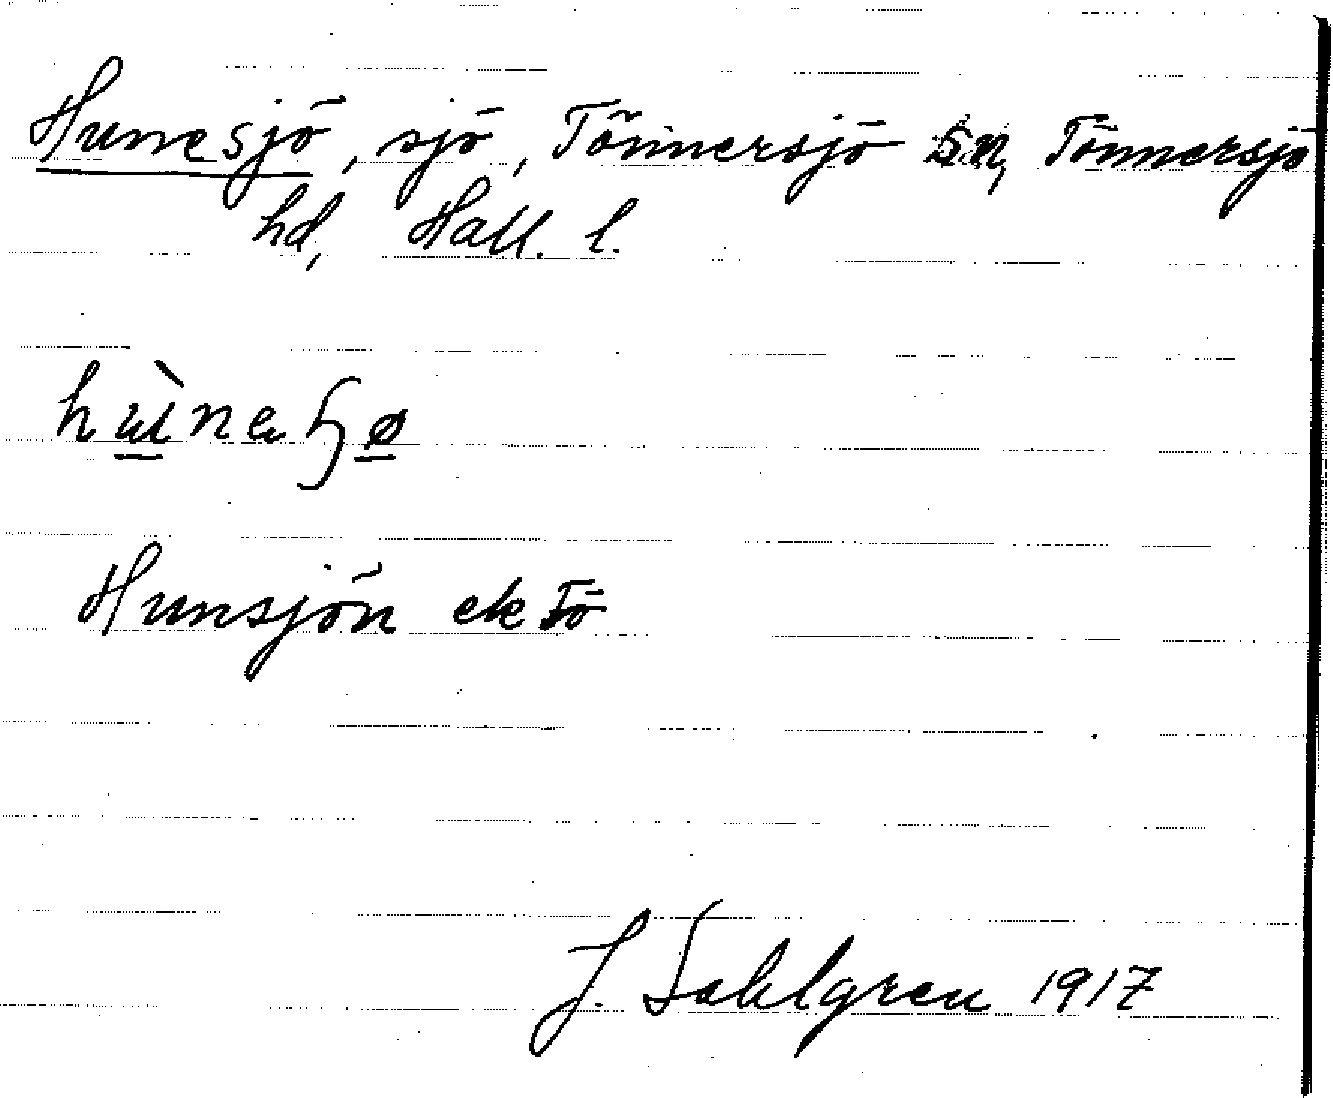 Hunesjö, sjö, Tönnersjö sn, Tönnersjö
hd, Hall. l.
Hunsjön ek Tö
J. Sahlgren 1917